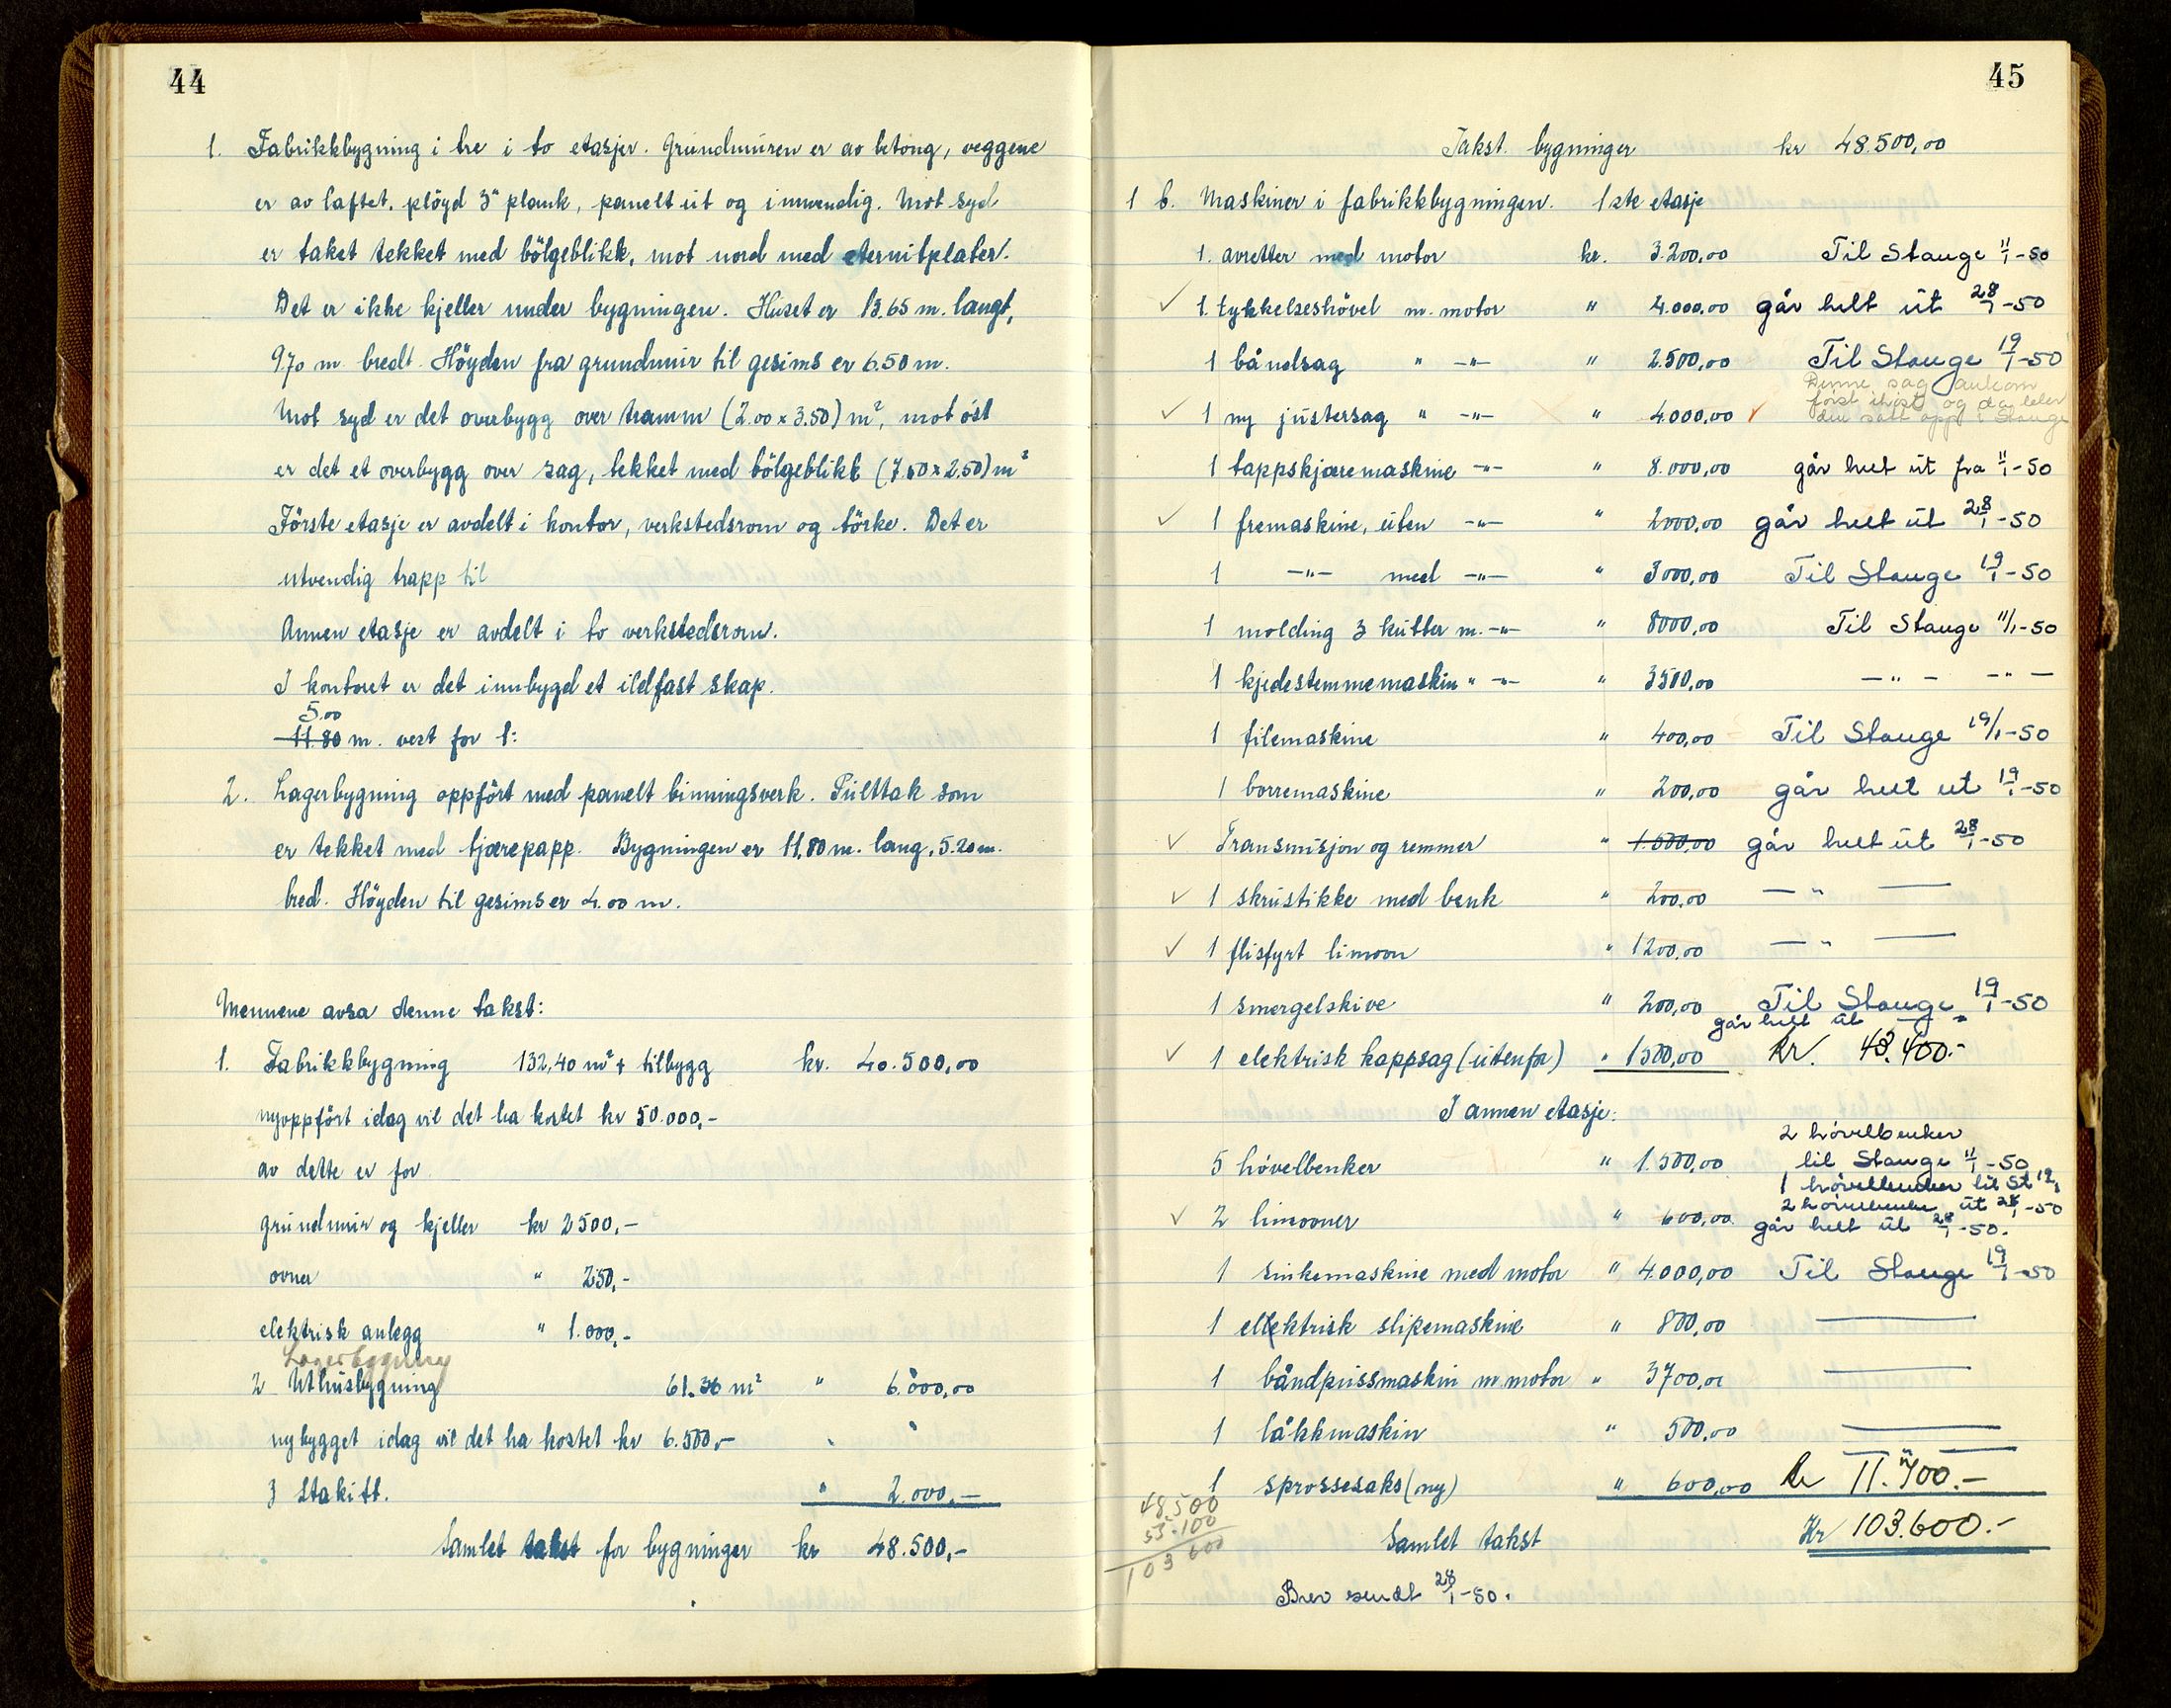 44
1. Fabrikkbygning i tre i to etasjer. Grundmuren er av betong, veggene
er av laftet, pløyd 3" plank, panelt ut og innvendig. Mot syd
er taket tekket med bölgeblikk, mot nord med eternitplater.
Det er ikke kjeller under bygningen. Huset er 13.65 m. langt,
9.70 m bredt. Höyden fra grundmur til gesims er 6.50 m.
Mot syd er det overbygg over tramm (2.00 x 3.50) m², mot öst
er det et overbygg over sag, tekket med bölgeblikk (7.60 x 2.50) m²
Förste etasje er avdelt i kontor, verkstedsrom og törke. Det er
utvendig trapp til
Annen etasje er avdelt i to verkstedsrom.
I kontoret er det innbygd et ildfast skap.
5.00
11.80 m. vest for 1:
2. Lagerbygning oppfört med panelt binningsverk. Pulttak som
er tekket med tjærepapp. Bygningen er 11,80 m. lang, 5.20 m.
bred. Höyden til gesims er 4.00 m.
Mennene avsa denne takst:
1. Fabrikkbygning 132,40 m² + tilbygg kr. 40.500,00
nyoppfört idag vil det ha kostet kr 50.000,-
av dette er for
grundmur og kjeller kr 2500,-
ovner " 250,-
elektrisk anlegg " 1.000,-
Lagerbygning
2 Uthusbygning 61.36 m² " 6.000,00
nybygget idag vil det ha kostet kr 6.500,-
3 Stakitt. " 2.000,-
Samlet takst for bygninger kr 48.500,-
45
Takst bygninger kr 48.500,00
1 b. Maskiner i fabrikkbygningen. 1ste etasje
1. avretter med motor kr. 3.200,00 Til Stange 11/1-50
✓ 1. tykkelseshövel m. motor " 4.000,00 går helt ut 28/1-50
1 båndsag " -"- " 2.500,00 Til Stange 19/1-50
Denne sag ankom
först ihöst og da blev
den satt opp i Stange
✓ 1 ny justersag " -"- " 4.000,00 ✓
1 tappskjæremaskine -"- " 8.000,00 går helt ut fra 11/1-50
✓ 1 fremaskine, uten -"- " 2000,00 går helt ut 28/1-50
1 -"- med -"- " 3000,00 Til Stange 19/1-50
1 molding 3 kutter m. -"- " 8000,00 Til Stange 11/1-50
1 kjedestemmemaskin " -"- " 3500,00 -"- -"-
1 filemaskine " 400,00 Til Stange 19/1-50
1 borremaskine " 200,00 går helt ut 19/1-50
✓ Transmisjon og remmer " 1.500,00 går helt ut 28/1-50
✓ 1 skrustikke med benk " 200,00 -"-
✓ 1 flisfyrt limovn " 1200,00 -"-
1 smergelskive " 200,00 Til Stange 19/1-50
går helt ut
✓ 1 elektrisk kappsag (utenfor) " 1500,00 kr. 43.400.-
I annen etasje:
2 hövelbenker
5 hövelbenker " 1.500,00 til Stange 11/1-50
1 hövelbenker til St 19/1
2 hövelbenke ut 28/1-50
✓ 2 limovner " 600,00 går helt ut 28/1-50.
1 sinkemaskine med motor " 4.000,00 Til Stange 19/1-50
1 ellektrisk slipemaskine " 800,00
1 båndpussmaskin m. motor " 3700,00
1 låkkmaskin " 500,00
1 sprossesaks (ny) " 600,00 kr 11.700.-
48.500
55.100
103 600
Samlet takst Kr 103.600.-
Brev sendt 28/1-50.